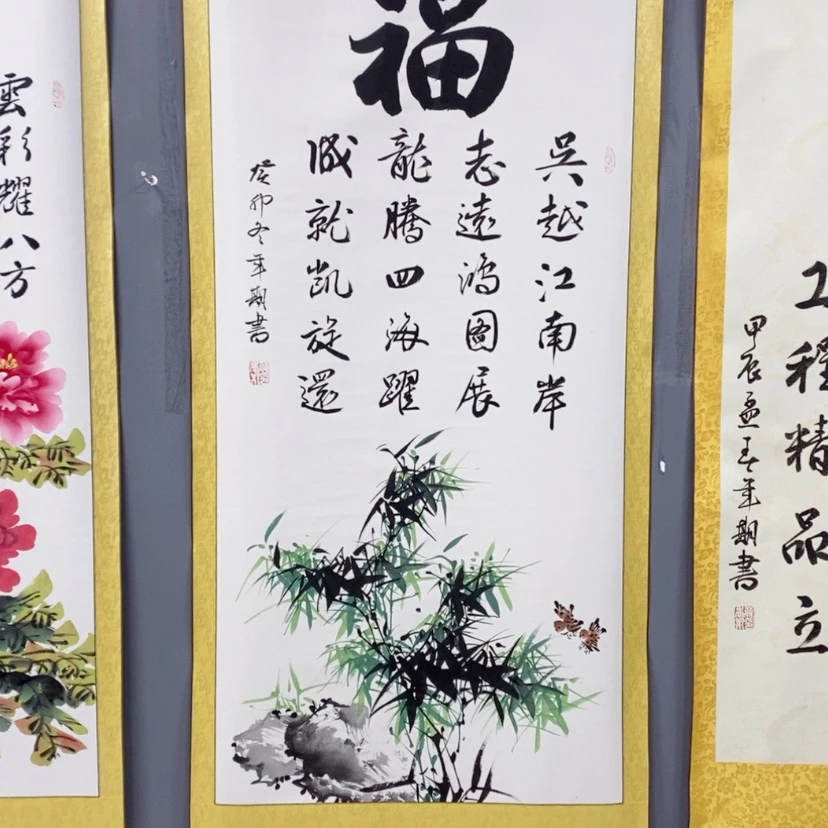 福
吴越江南岸
志遠鴻圖展
龍騰四海躍
成就凯旋還
癸卯冬年期書
雲彩耀八方
工程精品立
甲辰孟春年期書